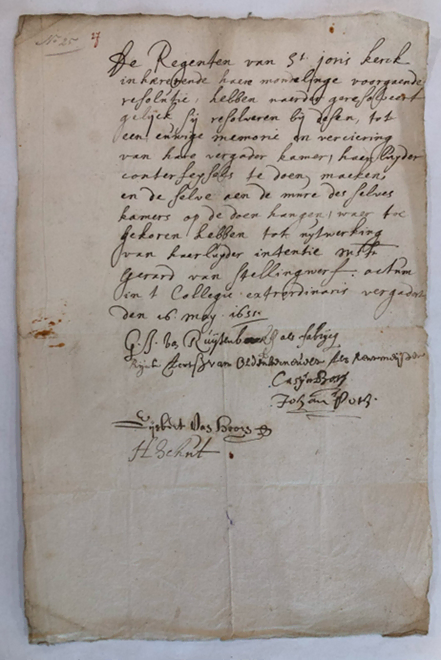 No 25
De Regenten van St. joris kerck
inhærerende haere mondelinge voorgaende
resolutie, hebben naerder geresolveert
gelijck sij resolveren bij desen, tot
een eeuwige memorie en verciering
van hare vergader kamer, haerluyder
conterfeytsels te doen maeken
en de selve aen de mure des selves
kamers op te doen hangen, waer toe
gekoren hebben tot uytwerking
van haerluyder intentie mr.
Gerard van Stellingwerf. actum
in t Collegie extraordinaris vergadert
den 16 may 1651
van Ruijtenb als fabrijcq
van als
Johan
Eijsbert
H Schut